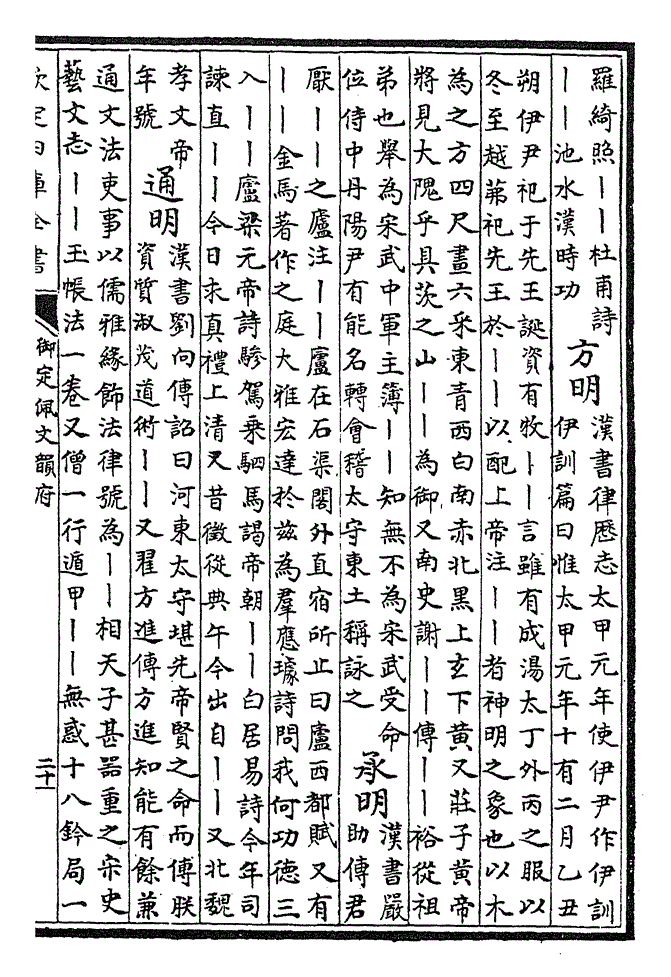 羅綺照丨丨杜甫詩
丨丨池水漢時功
方明
漢書律歷志太甲元年使伊尹作伊訓
伊訓篇曰惟太甲元年十有二月乙丑
朔伊尹祀于先王誕資有牧丨丨言雖有成湯太丁外丙之服以
冬至越茀祀先王於丨丨以配上帝注丨丨者神明之象也以木
為之方四尺畫六采東青西白南赤北黑上玄下黃又莊子黃帝
將見大隗乎具茨之山丨丨為御又南史謝丨丨傳丨丨裕從祖
弟也舉為宋武中軍主簿丨丨知無不為宋武受命
位侍中丹陽尹有能名轉會稽太守東土稱詠之
承明
漢書嚴
助傳君
厭丨丨之廬注丨丨廬在石渠閣外直宿所止曰廬西都賦又有
丨丨金馬著作之庭大雅宏達於兹為羣應璩詩問我何功德三
入丨丨廬梁元帝詩驂駕乘駟馬謁帝朝丨丨白居易詩今年司
諫直丨丨今日求真禮上清又昔徵從典午今出自丨丨又北魏
孝文帝
年號
通明
漢書劉向傳詔曰河東太守堪先帝賢之命而傅朕
資質淑茂道術丨丨又翟方進傳方進知能有餘兼
通文法吏事以儒雅緣飾法律號為丨丨相天子甚器重之宋史
藝文志丨丨玉帳法一卷又僧一行遁甲丨丨無惑十八鈐局一
欽定四庫全書
御定佩文韻府
二十